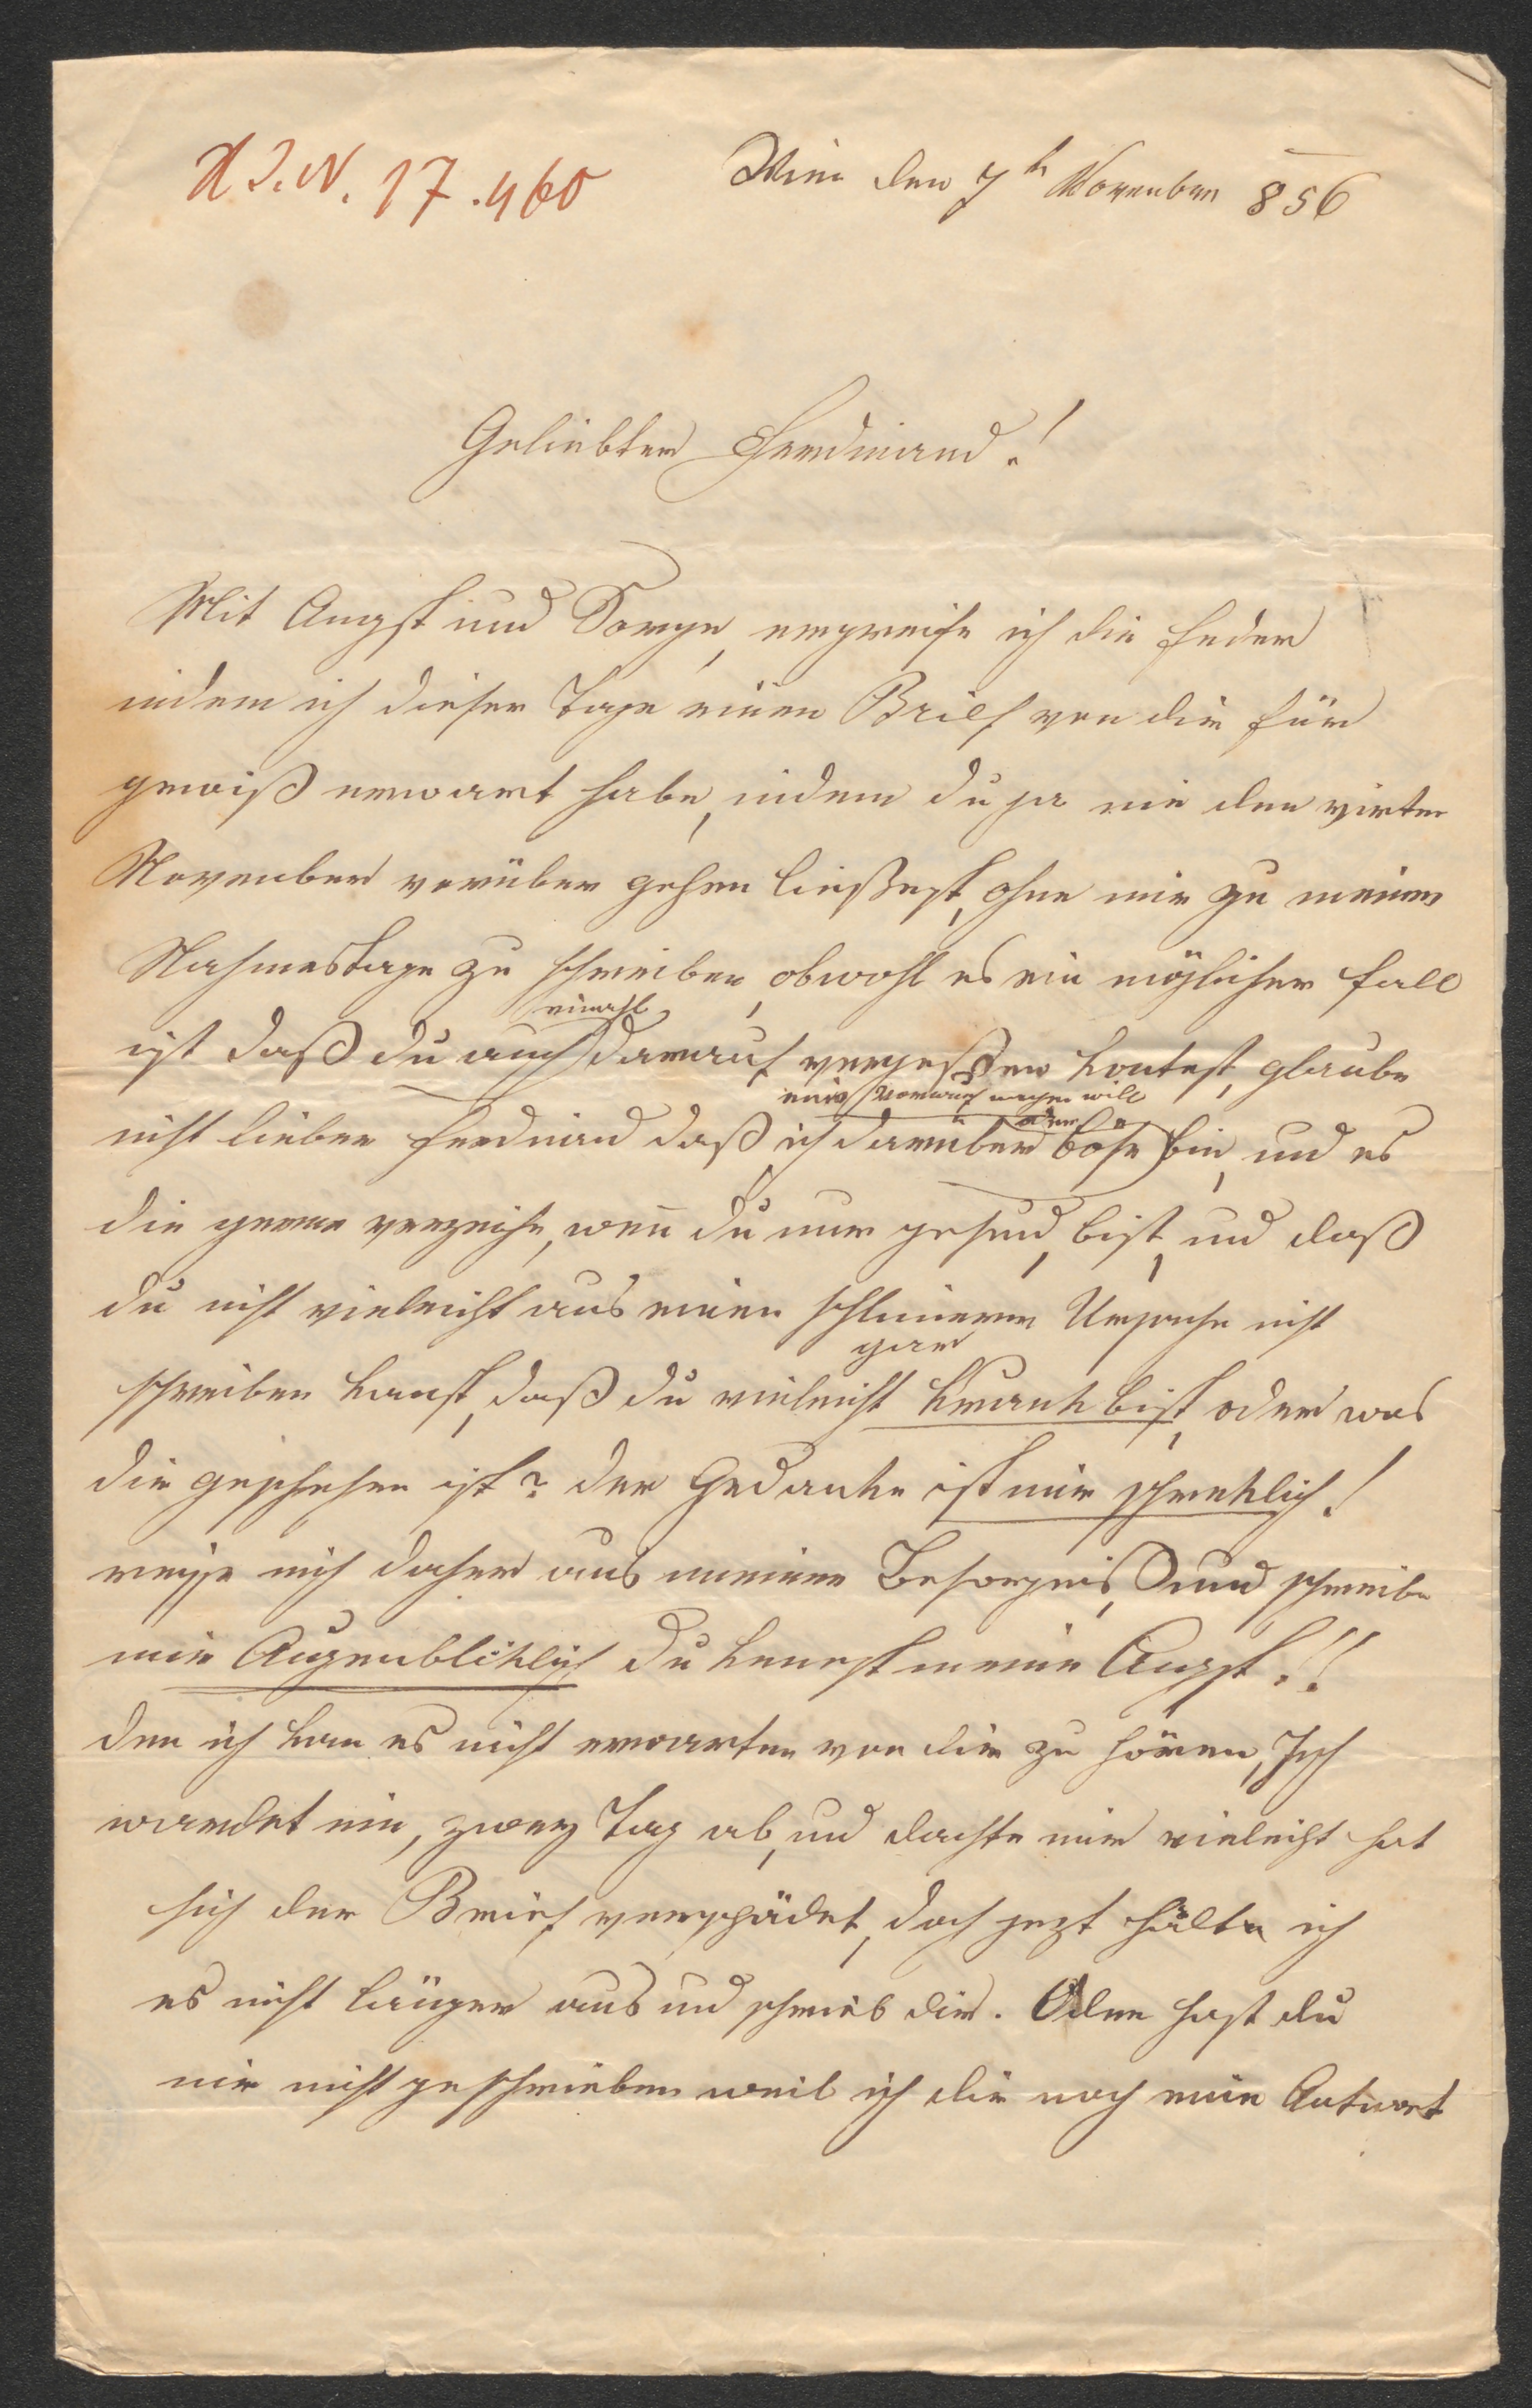 H.I.N. 17.460
Wien den 7t November 856
Geliebter Ferdinand!
Mit Angst und Sorge, ergreife ich die Feder
indem ich dieser Tage einen Brief von dir für
gewiß erwart habe, indem du ja nie den virten
November vorüber gehen ließest, ohne mir zu meinem
Nahmestage zu schreiben, obwohl es ein möglicher Fall
einmahl
ist daß du auch darauf vergeßen kontest, glaube
Vorwurf machen will
oder
nicht lieber Ferdinand daß ich darüber böse bin, und es
dir gerne verzeihe, wenn du nur gesund, bist, und daß
du nicht vieleicht aus einer schlimeren Ursache nicht
gar
schreiben kanst, daß du vieleicht krank bist, oder was
dir geschehen ist? der Gedanke ist mir schreklich!
reisse mich daher aus meiner Besorgniß, und schreibe
mir Augenbliklich du kennst meine Angst!!
den ich kan es nicht erwarten von dir zu hören, Ich
wardet ein, zwey Tag ab, und dachte mir vieleicht hat
sich der Brief verspädet, doch jezt halte ich
es nicht länger aus und schreib dir. Oder hast du
mir nicht geschrieben weil ich dir noch keine Antwort